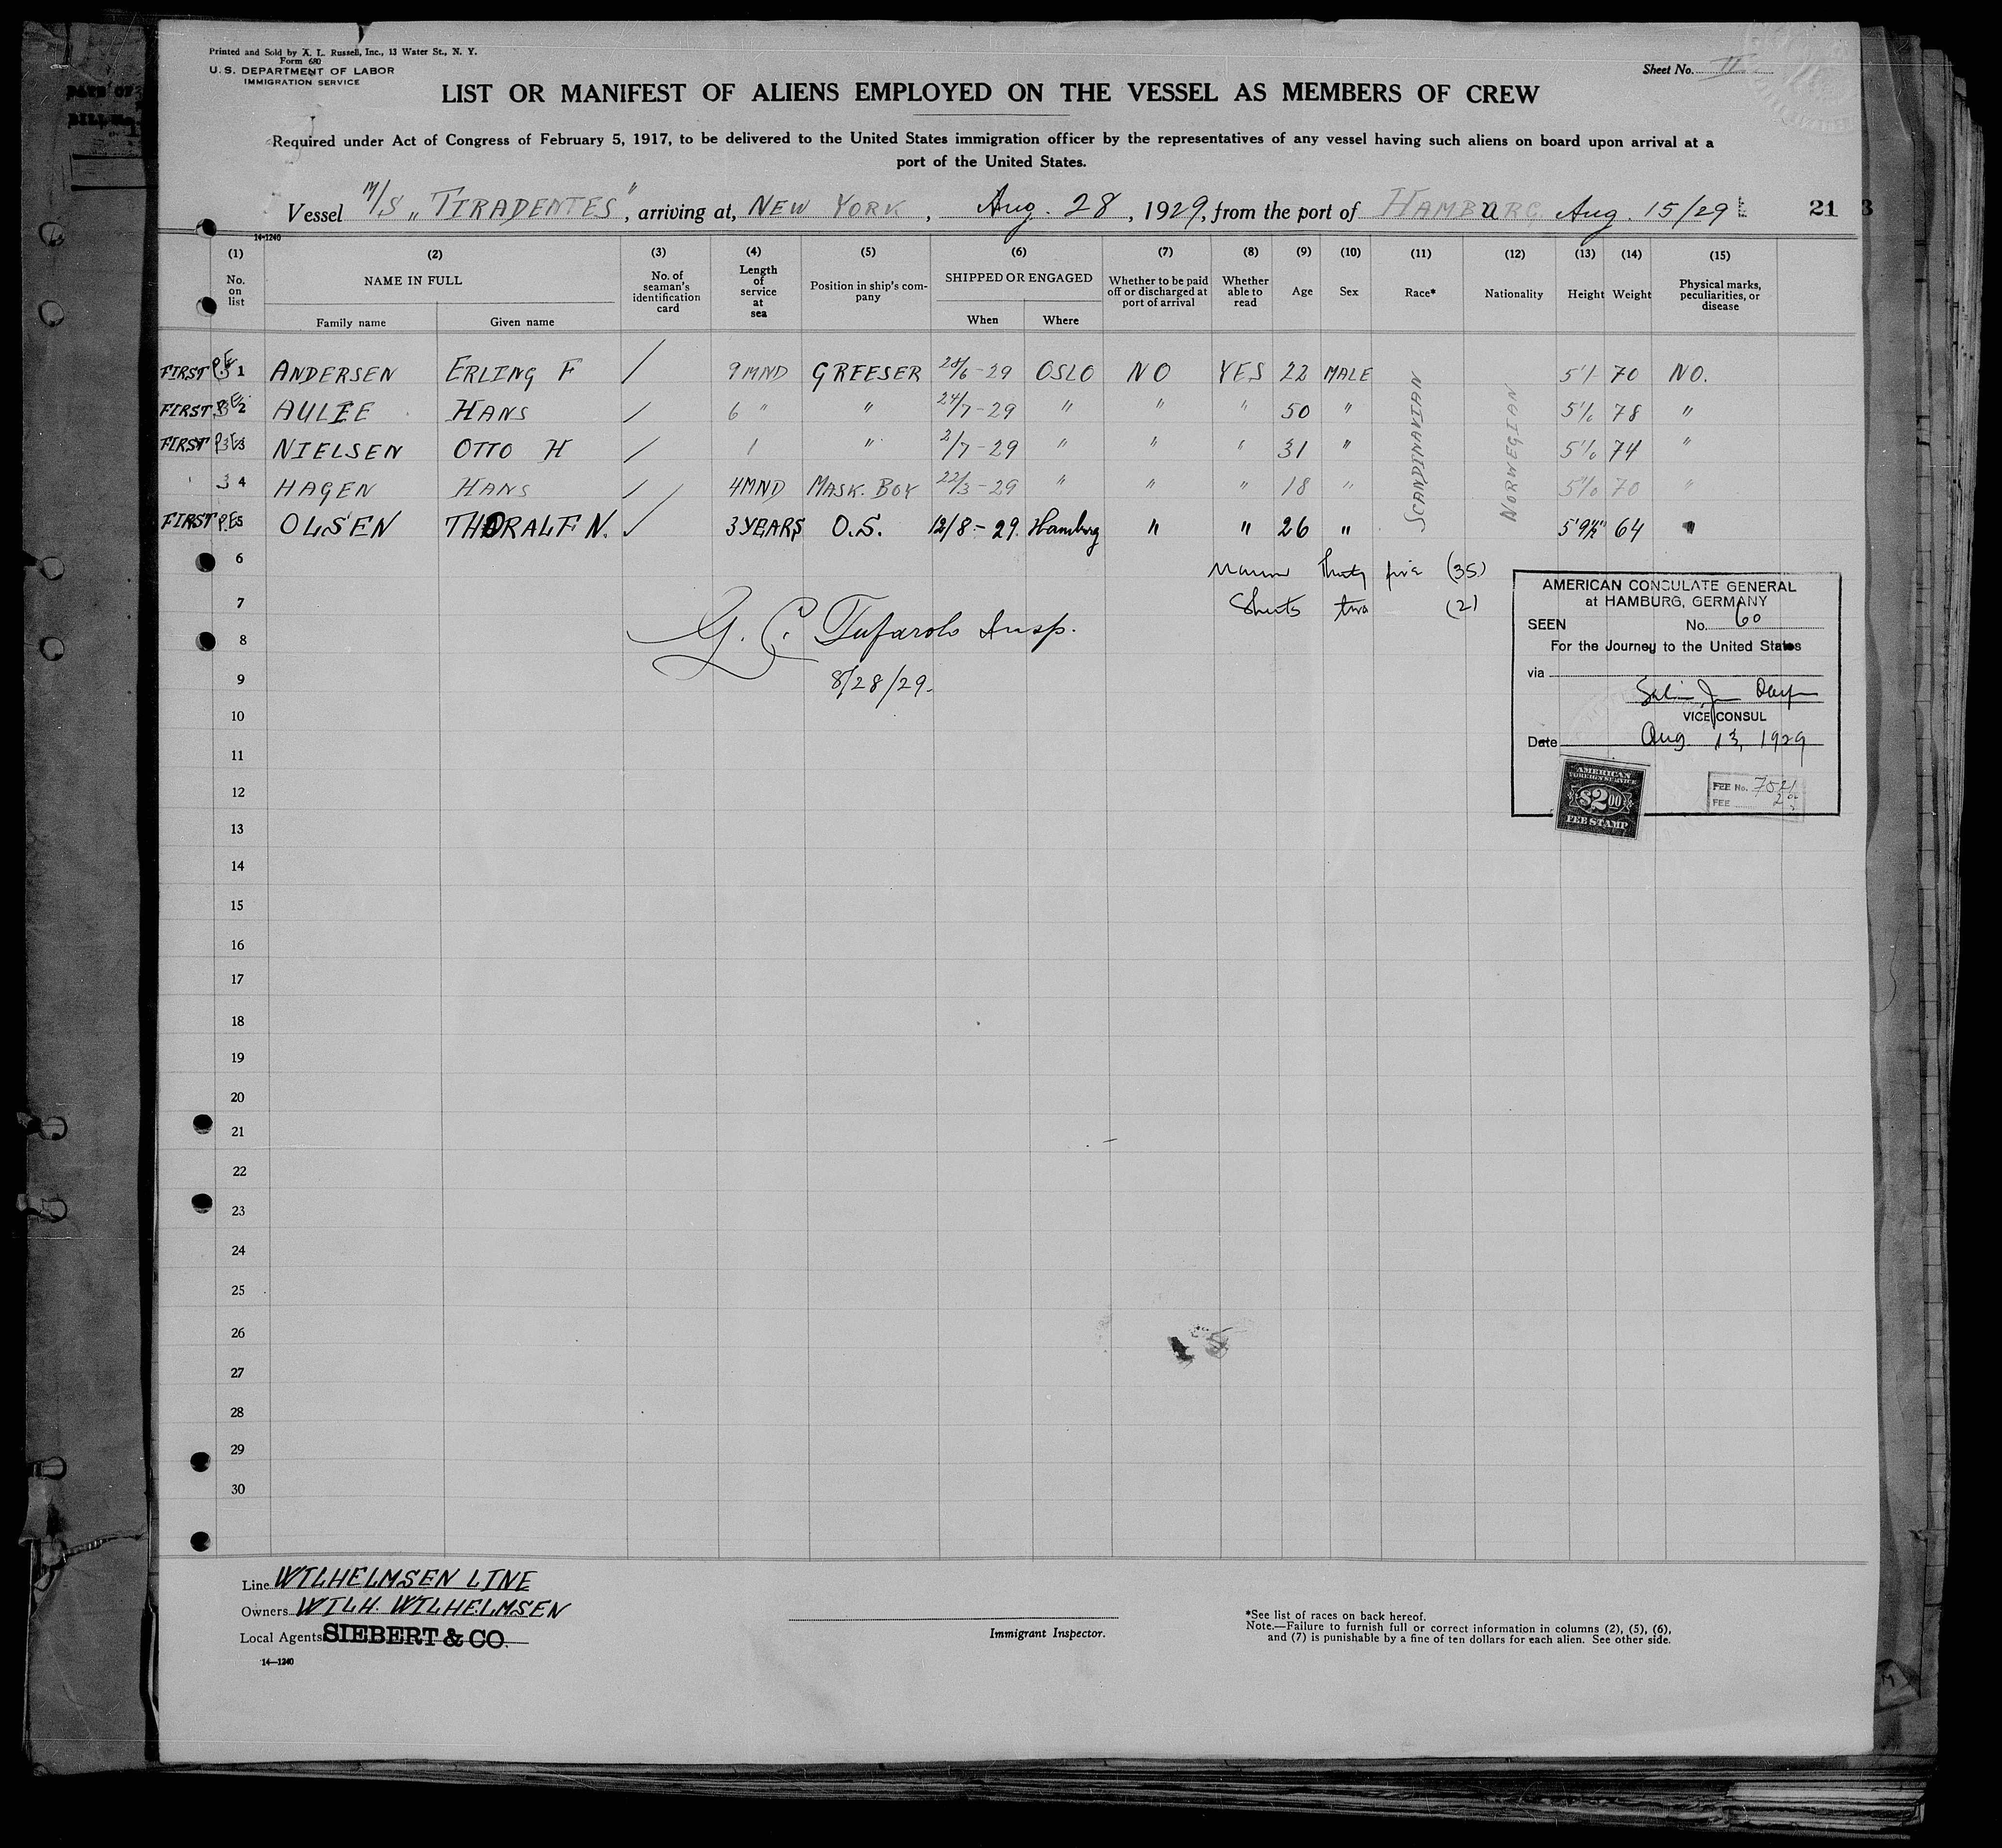 Printed and Sold by A. L. Russell, Inc., 13 Water St., N. Y.
Form 680
U. S. DEPARTMENT OF LABOR
IMMIGRATION SERVICE
Sheet No. II
LIST OR MANIFEST OF ALIENS EMPLOYED ON THE VESSEL AS MEMBERS OF CREW
Required under Act of Congress of February 5, 1917, to be delivered to the United States immigration officer by the representatives of any vessel having such aliens on board upon arrival at a
port of the United States.
Vessel M/S „TIRADENTES", arriving at, NEW YORK, Aug. 28, 1929, from the port of HAMBURG Aug. 15/29 21 3
14-1240
(1) (2) (3) (4) (5) (6) (7) (8) (9) (10) (11) (12) (13) (14) (15)
No. on list NAME IN FULL Family name Given name No. of seaman's identification card Length of service at sea Position in ship's company SHIPPED OR ENGAGED When Where Whether to be paid off or discharged at port of arrival Whether able to read Age Sex Race* Nationality Height Weight Physical marks, peculiarities, or disease
FIRST 1 ANDERSEN ERLING F / 9 MND GREESER 28/6-29 OSLO NO YES 22 MALE SCANDINAVIAN NORWEGIAN 70 NO.
FIRST 2 AULIE HANS / 6 " " 24/7-29 " " " 50 " 78 "
FIRST 3 NIELSEN OTTO H / 1 " 2/7-29 " " " 31 " 74 "
3 4 HAGEN HANS / / 4MND MASK. BOY 22/3-29 " " " 18 " 70 "
FIRST P.E. 5 OLSEN THORALF N. / 3 YEARS O.S. 12/8-29. Hamburg " " 26 " 5'9½" 64 "
6
thirty five (35)
7
Sheets two (2)
8
G. C. Tufarolo Insp.
9
8/28/29.
10
11
12
13
14
15
16
17
18
19
20
21
22
23
24
25
26
27
28
29
30
AMERICAN CONSULATE GENERAL
at HAMBURG, GERMANY
SEEN No. 60
For the Journey to the United States
via
VICE CONSUL
Date Aug. 13, 1929
AMERICAN
FOREIGN SERVICE
$2.00
FEE STAMP
FEE No. 7521
FEE 2
Line WILHELMSEN LINE
Owners WILH. WILHELMSEN
Local Agents SIEBERT & CO.
14—1240
Immigrant Inspector.
*See list of races on back hereof.
Note.—Failure to furnish full or correct information in columns (2), (5), (6),
and (7) is punishable by a fine of ten dollars for each alien. See other side.